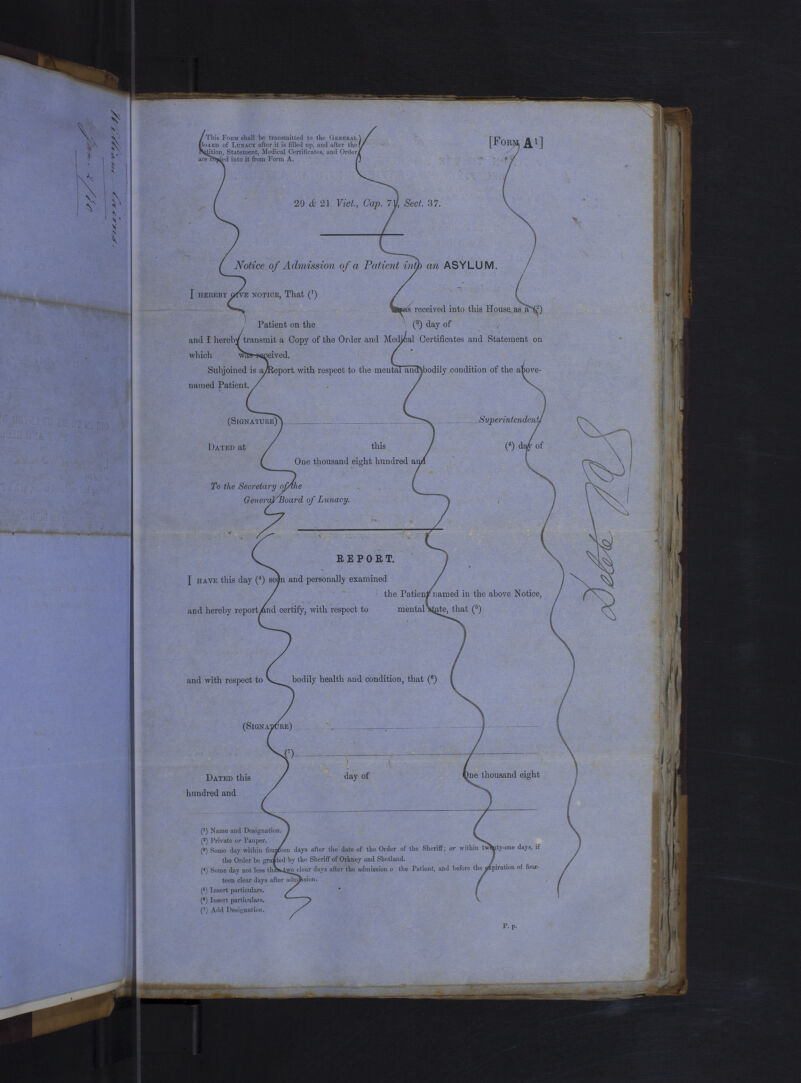 William Cairns.
This Form shall be transmitted to the General
Board of Lunacy after it is filled up, and after the
Petition, Statement, Medical Certificates, and Order
are copied into it from Form A.
[Form A¹]
20 & 21 Vict., Cap. 71, Sect. 37.
Notice of Admission of a Patient into an ASYLUM.
I hereby give notice, That (¹)
was received into this House as a (²)
Patient on the (³) day of
and I hereby transmit a Copy of the Order and Medical Certificates and Statement on
which was received.
Subjoined is a Report with respect to the mental and bodily condition of the above-
named Patient.
(Signature) Superintendent.
Dated at this (⁴) day of
One thousand eight hundred and
To the Secretary of the
General Board of Lunacy.
Delete
REPORT.
I have this day (⁴) seen and personally examined
the Patient named in the above Notice,
and hereby report and certify, with respect to mental state, that (⁵)
and with respect to bodily health and condition, that (⁶)
(Signature)
(⁷)
Dated this day of One thousand eight
hundred and
(¹) Name and Designation.
(²) Private or Pauper.
(³) Some day within fourteen days after the date of the Order of the Sheriff; or within twenty-one days, if
the Order be granted by the Sheriff of Orkney and Shetland.
(⁴) Some day not less than two clear days after the admission o the Patient, and before the expiration of four-
teen clear days after admission.
(⁵) Insert particulars.
(⁶) Insert particulars.
(⁷) Add Designation.
P. p.